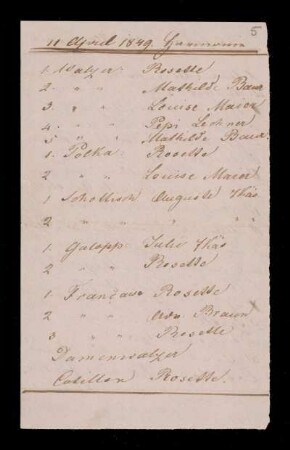 5
11 April 1849. Harmonie
1. Walzer Rosette
2. " " Mathilde Baur
3. " " Louise Maier
4. " " Pepi Lechner
5. " " Mathilde Baur.
1. Polka Rosette
2 " Louise Maier
1 Schottisch Auguste Thäo
2 " " " "
1. Galopp Julie Thäo
2 " " Rosette
1. Française Rosette
2 " " Adv. Braun
3 " " Rosette
Damenwalzer
Cotillon Rosette.